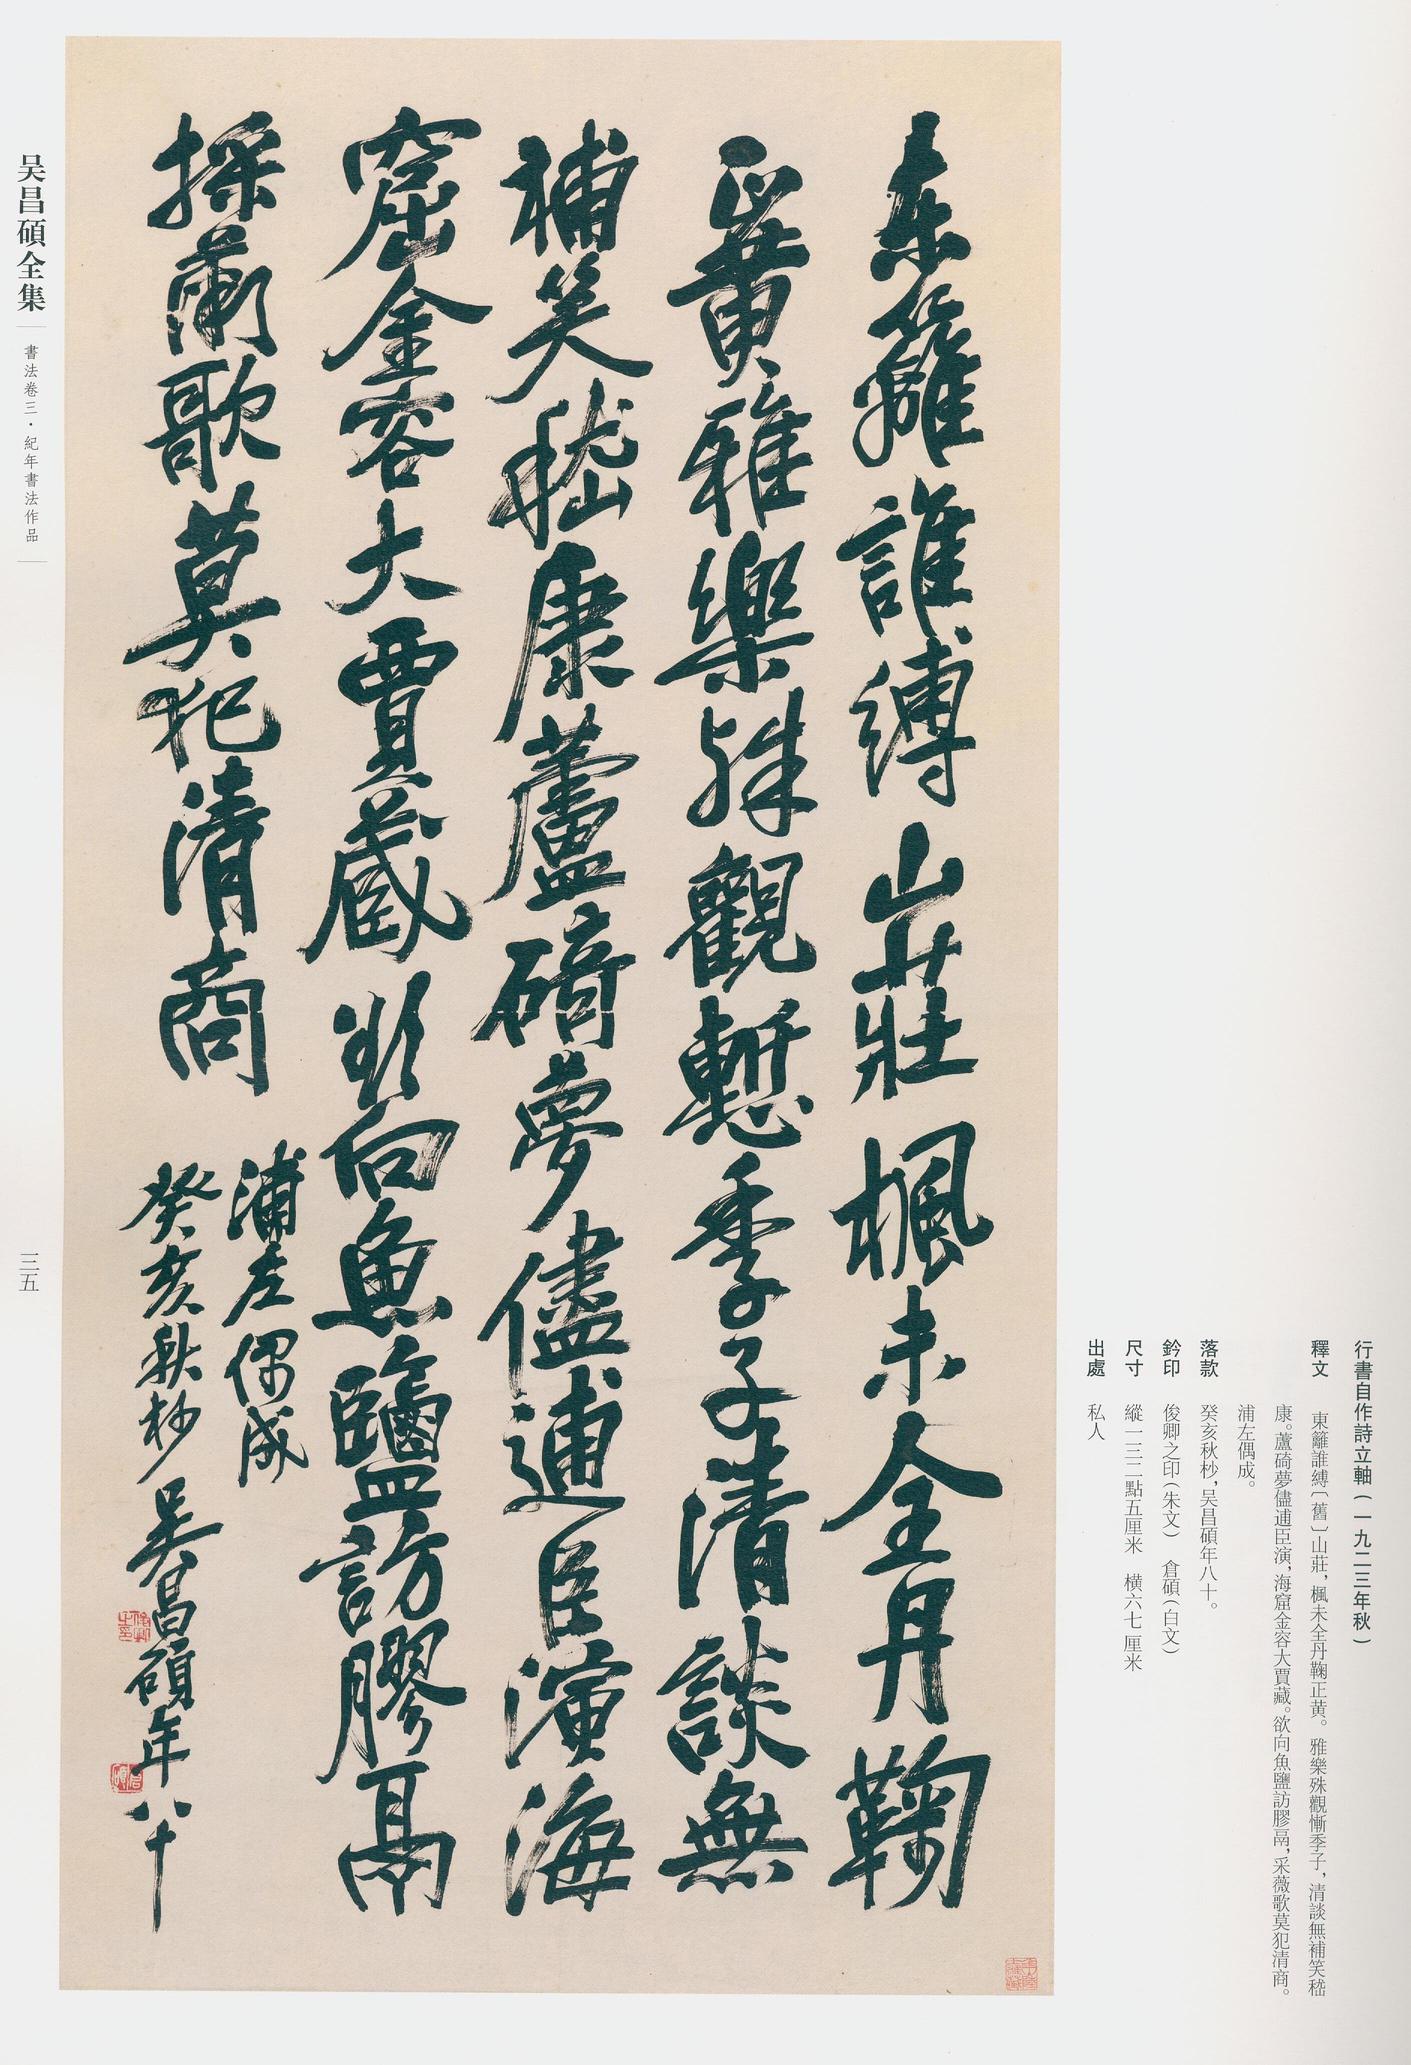 行書自作詩立軸（一九二三年秋）
釋文 東籬誰縛〔舊〕山莊，楓未全丹鞠正黄。雅樂殊觀慚季子，清談無補笑嵇
康。蘆碕夢儘逋臣演，海窟金容大賈藏。欲向魚鹽訪膠鬲，采薇歌莫犯清商。
浦左偶成。
落款 癸亥秋杪，吴昌碩年八十。
鈐印 俊卿之印（朱文） 倉碩（白文）
尺寸 縱一三二點五厘米 橫六七厘米
出處 私人
东籬誰縛山莊楓未全丹鞠
正黄雅樂殊觀慙季子清談無
補笑嵇康蘆碕夢儘逋臣演海
窟金容大賈藏欲向魚鹽訪膠鬲
採薇歌莫犯清商
浦左偶成
癸亥秋杪吴昌碩年八十
俊卿之印
倉碩
吴昌碩全集
書法卷三·紀年書法作品
三五